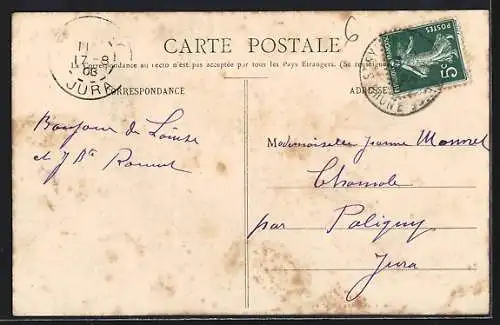 CARTE POSTALE
La Correspondance au recto n'est pas acceptée par tous les Pays Etrangers. (Se renseigner
CORRESPONDANCE
ADRESSE
POSTES
5c
17-8
08
JURA
6
Bonjour de Louise
et J Bte
Mademoiselle Jeanne
Chamole
par Poligny
Jura